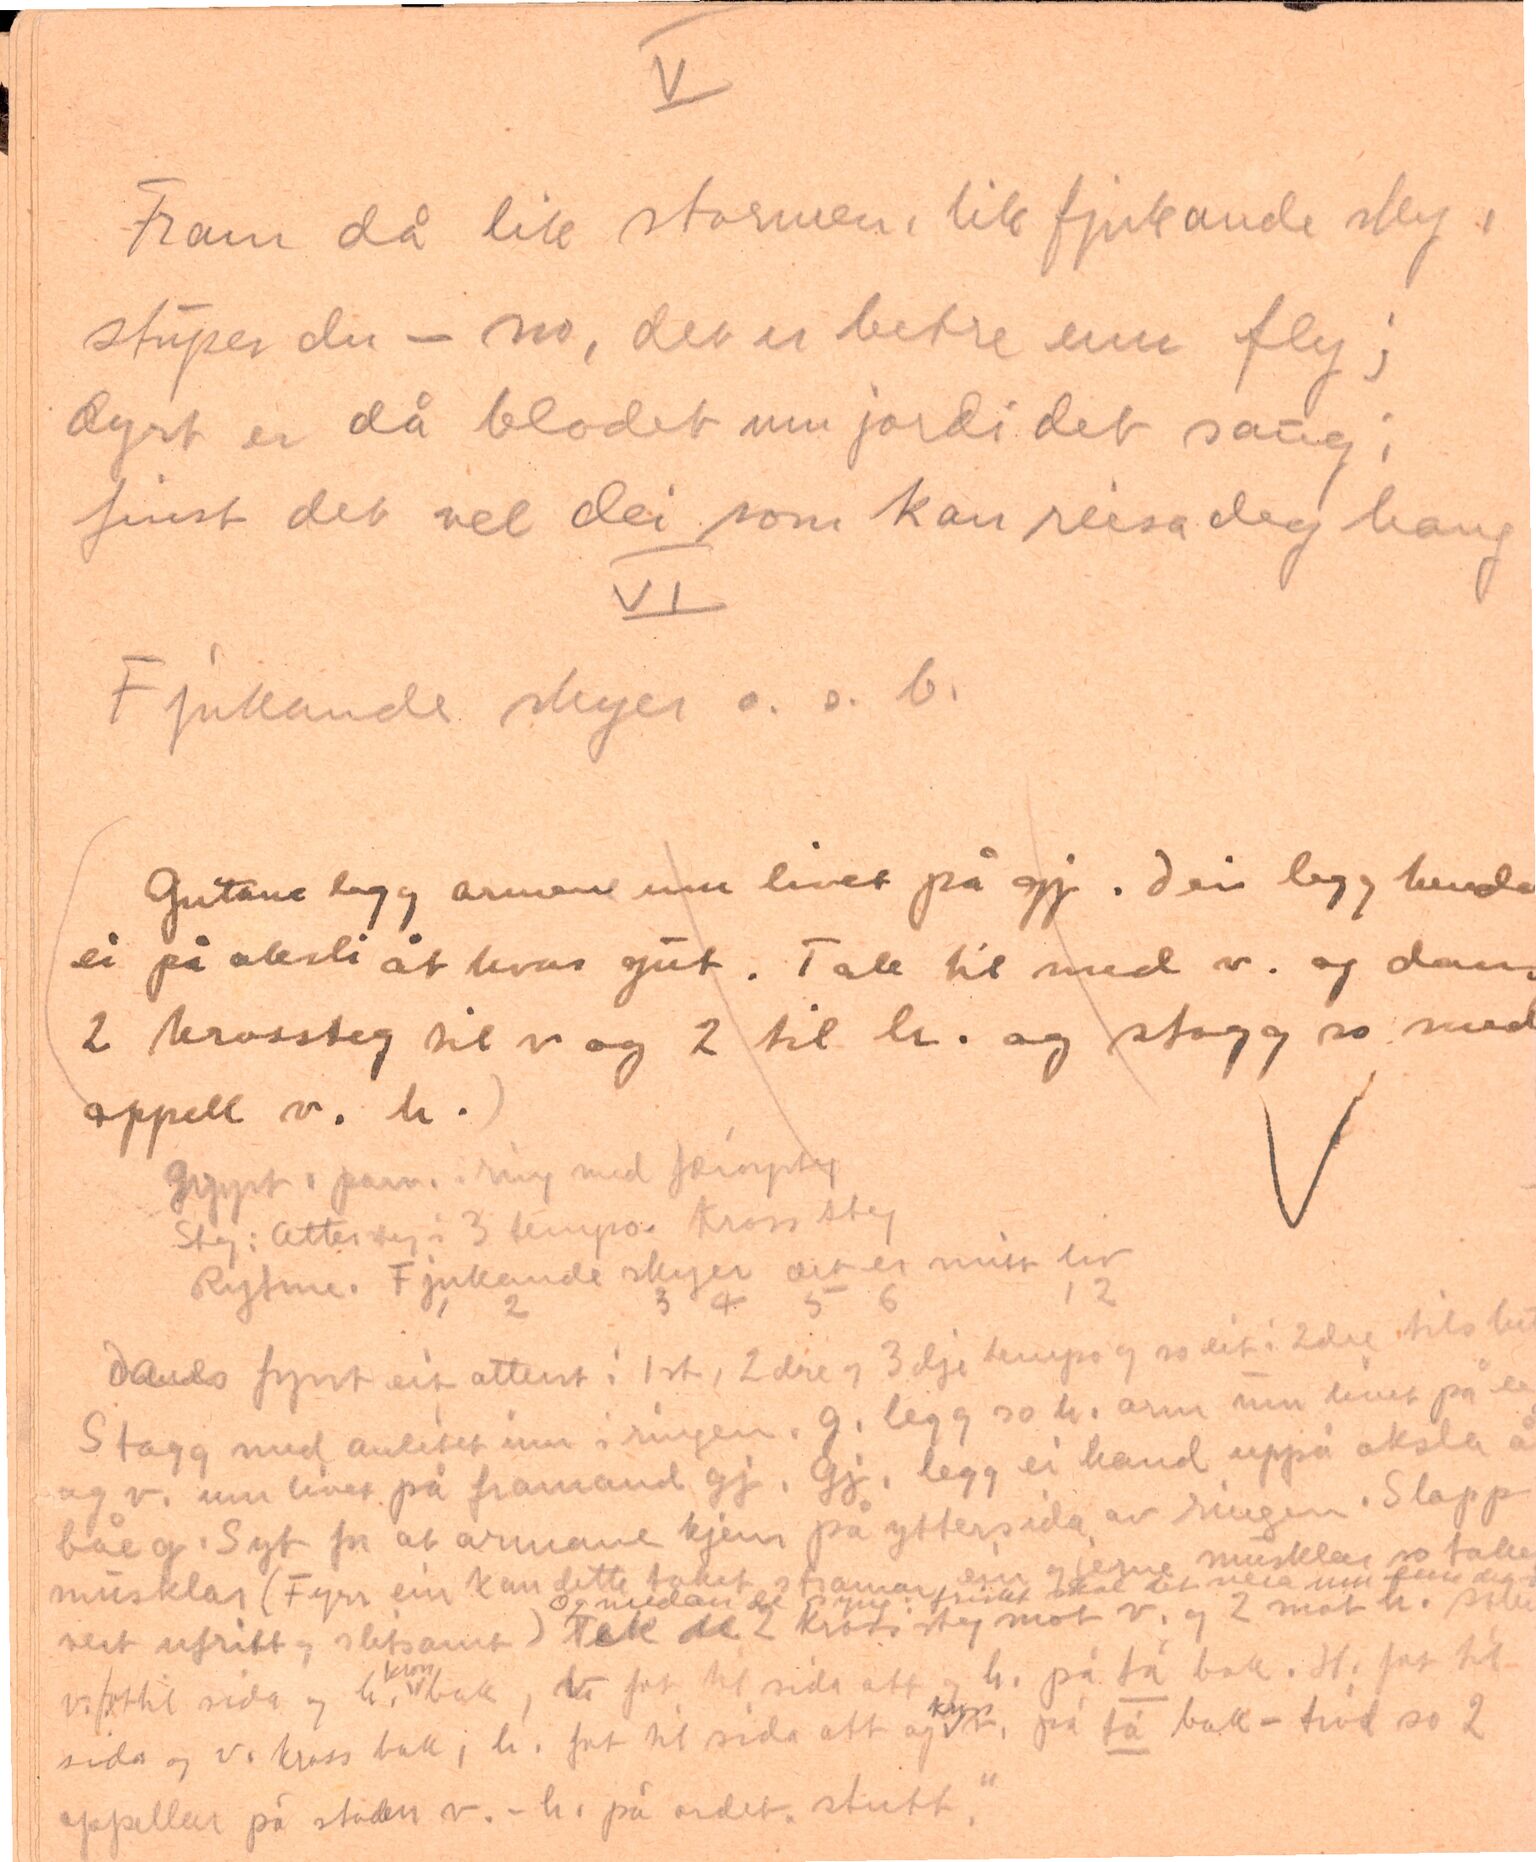 V
Fram då lik stormen, lik fjukande sky,
stüper du – no, det er betre enn fly;
dyrt er då blodet um jordi det saüg;
finst det vel dei som kan reisa deg haug
VI
Fjukande skyer o. s. b.
(Gutane legg armene um livet på gj. Dei legg henda
ei på aksli åt kvar güt. Tak til med v. og dans
2 krossteg til v og 2 til h. og stogg so med
appell v. h.)
par. i ring med
Steg: Attersteg i 3 tempo. Kross steg
Rytme. Fjukande skyer det er mitt liv
1 2 3 4 5 6 1 2
Dans fyrst eit atterst i 1st, 2dre og 3dje tempo og so eit i 2dre til slut
Stogg med anletet inn i ringen. G. legg so h. arm um livet på
og v. um livet på framand gj. Gj. legg ei hand uppå aksla å
båe g. Syt for at armane kjem på yttersida av ringen. Slapp
müsklar (Fyrr ein kan dette taket stramar ein gjerne müsklar so taket
og medan de
vert ufritt og slitsamt) Tak de 2 kross steg mot v. og 2 mot h.
kross
v. fot til sida og h. bak, v. fot til sida att og h. på tå bak. H. fot til
kross
sida og v. kross bak, h. fot til sida att og v. på tå bak – trød so 2
appellar på staden v. – h. på ordet. stutt."